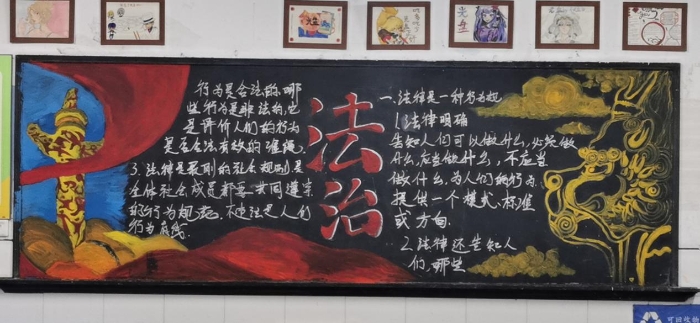 法治
一、法律是一种行为规
1.法律明确
告知人们可以做什么,必须做
什么,应当做什么,不应当
做什么,为人们的行为
提供一个模式、标准
或方向.
2.法律还告知人
们,哪些
行为是合法的,哪
些行为是非法的,它
是评价人们的行为
是否合法有效的准绳.
3.法律是最刚的社会规则,是
全体社会成员都要共同遵守
的行为规范,不违法是人们
行为底线.
光盘
可回收物